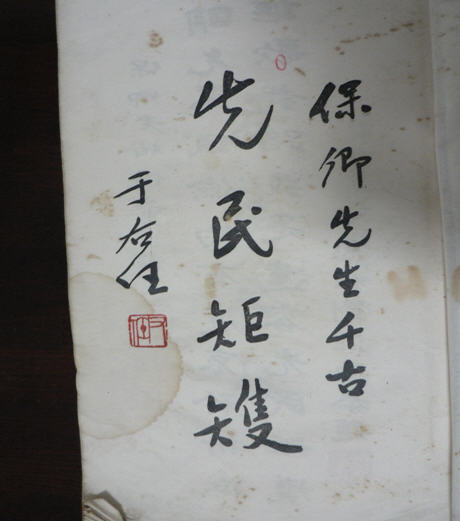 保卿先生千古
先民矩矱
于右任